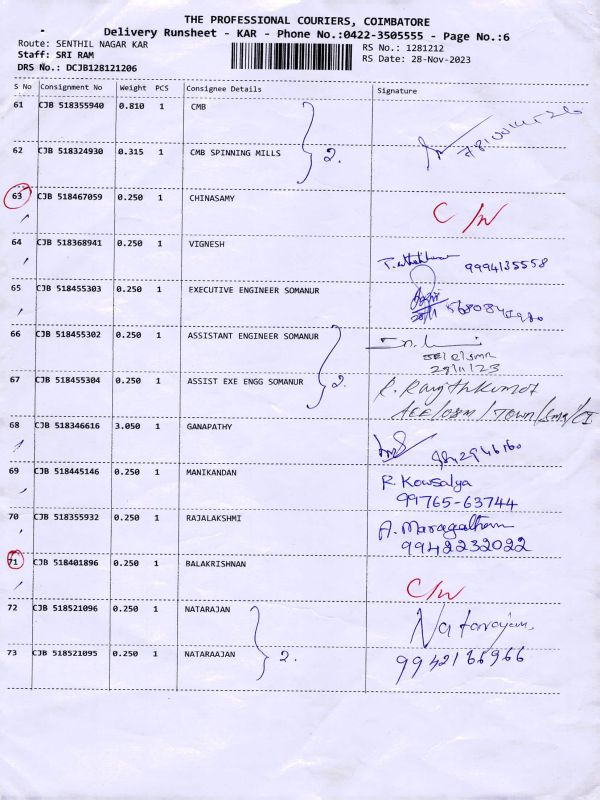 THE PROFESSIONAL COURIERS, COIMBATORE
Delivery Runsheet - KAR - Phone No.:0422-3505555 - Page No.:6
Route: SENTHIL NAGAR KAR
RS No.: 1281212
Staff: SRI RAM
RS Date: 28-Nov-2023
DRS No.: DCJB128121206
S No Consignment No Weight PCS Consignee Details Signature
61 CJB 518355940 0.810 1 CMB
2.
62 CJB 518324930 0.315 1 CMB SPINNING MILLS
63 CJB 518467059 0.250 1 CHINASAMY C/N
64 CJB 518368941 0.250 1 VIGNESH
9994135558
65 CJB 518455303 0.250 1 EXECUTIVE ENGINEER SOMANUR
28/11
66 CJB 518455302 0.250 1 ASSISTANT ENGINEER SOMANUR
29/11/23
2.
67 CJB 518455304 0.250 1 ASSIST EXE ENGG SOMANUR R. Ranjithkumar
AEE/O&M/TOWN/SMR/CI
68 CJB 518346616 3.050 1 GANAPATHY
9842946160
69 CJB 518445146 0.250 1 MANIKANDAN R. Kowsalya
99765-63744
70 CJB 518355932 0.250 1 RAJALAKSHMI A. Maragatham
9942232022
71 CJB 518401896 0.250 1 BALAKRISHNAN
C/N
72 CJB 518521096 0.250 1 NATARAJAN Natarajan
2.
73 CJB 518521095 0.250 1 NATARAAJAN 9942166966